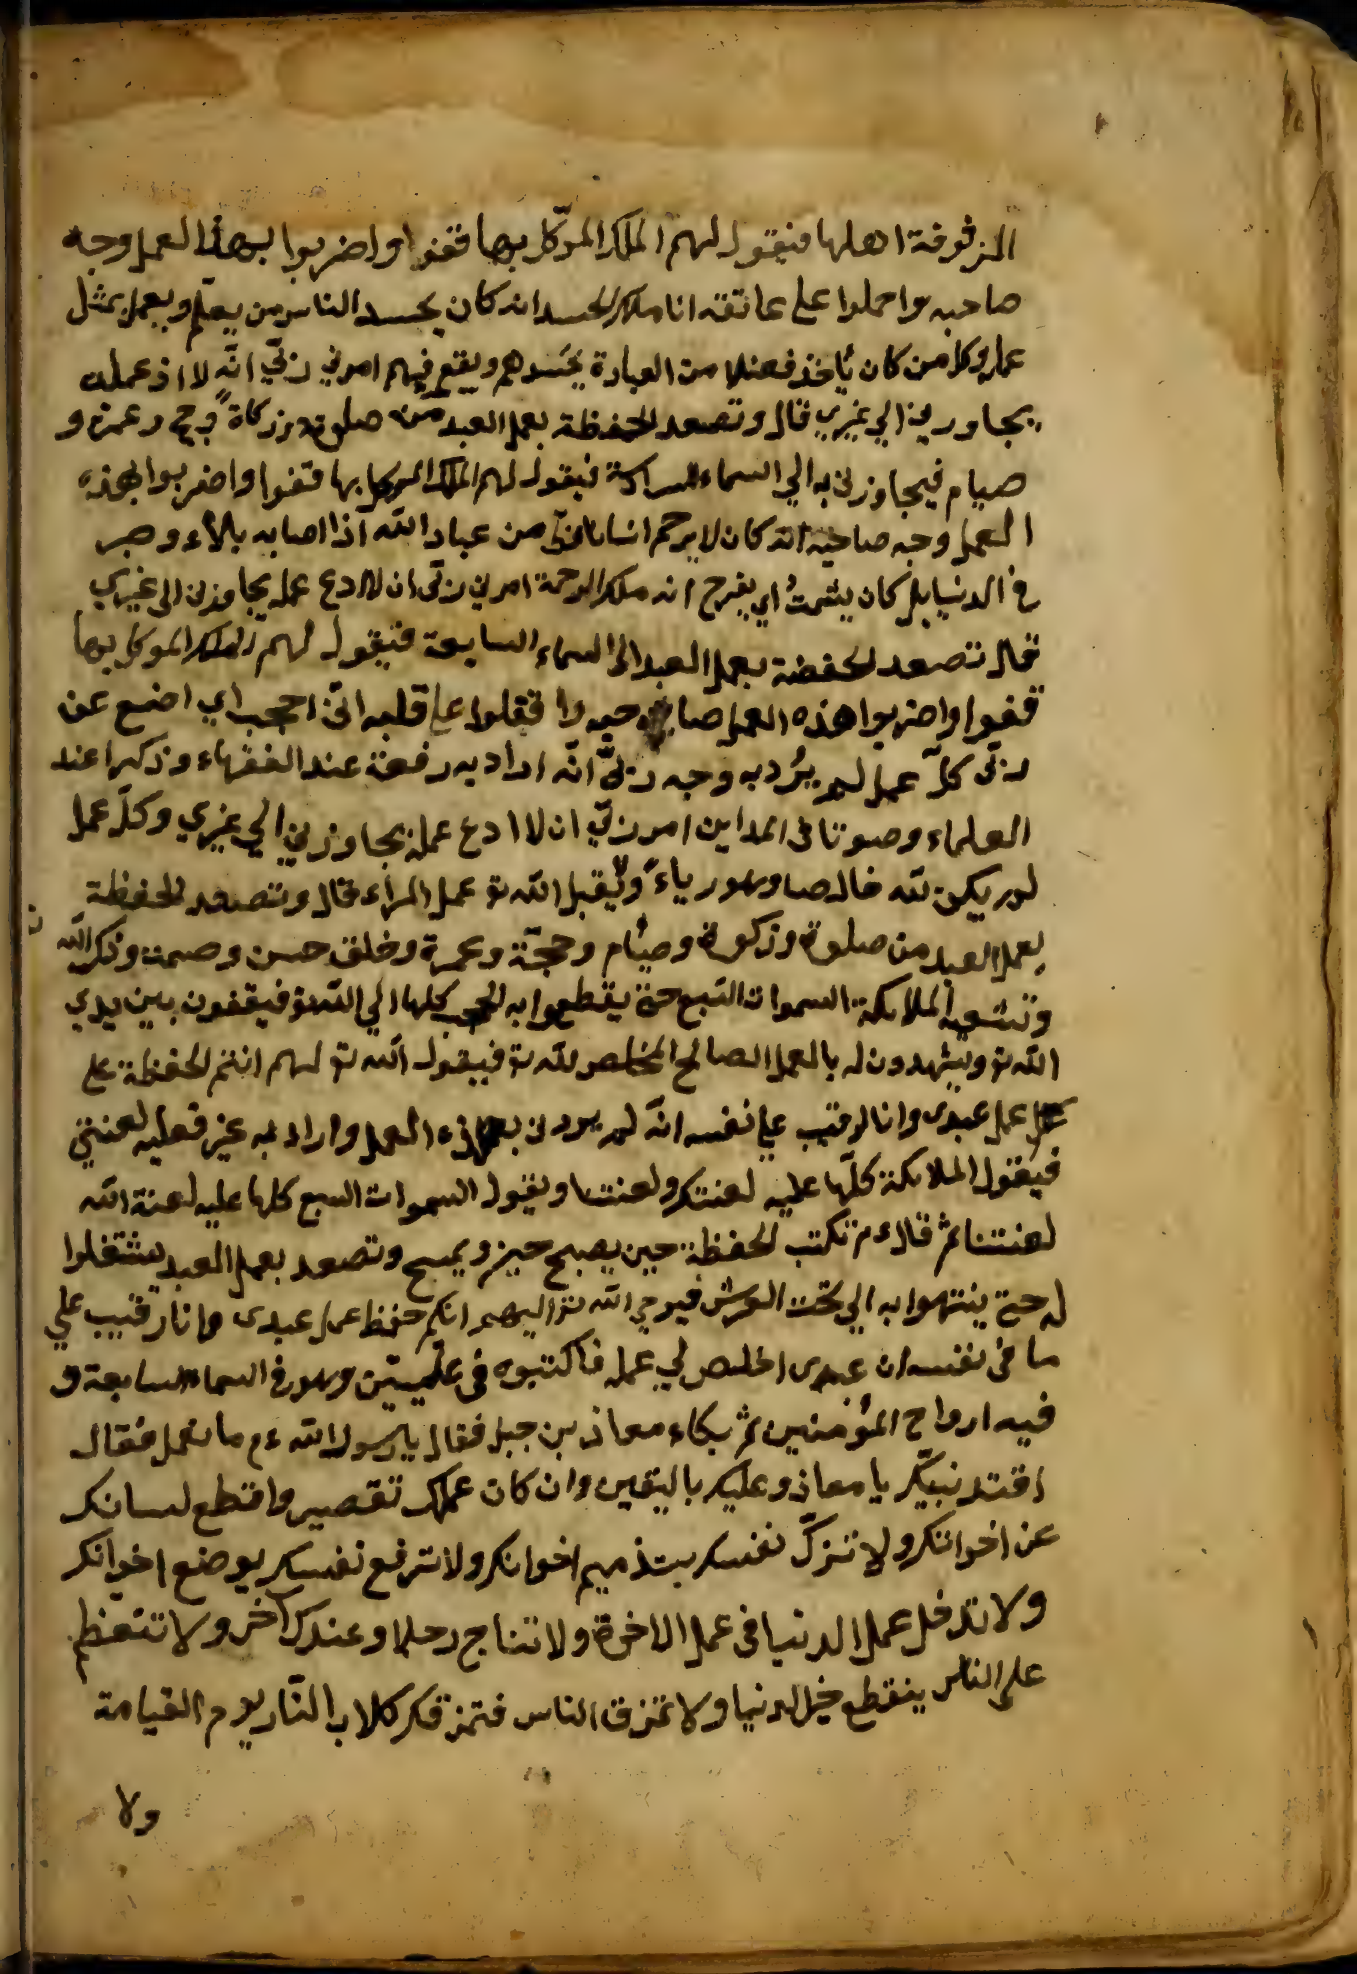 المزفوفة اهلها فيقول لهم الملك الموكّل بها قفوا واضربوا بهذا العمل وجه
صاحبه واحملوا على عاتقه انا ملك الحسد انه كان يحسد الناس من يعلم ويعمل بمثل
عمله وكل من كان يأخذ فضلا من العبادة يحسدهم ويقع فيهم امرني ربّي انّه لا ادع عمله
يجاوزني الي غيري قال وتصعد الحفظة بعمل العبد من صلوة وزكاة وحج وعمرة و
صيام فيجاوزني به الي السماء السادسة فيقول لهم الملك الموكل بها قفوا واضربوا بهذه
العمل وجه صاحبه انه كان لا يرحم انسانا من عباد الله اذا اصابه بلاء وضر
في الدنيا بل كان يشمت اي يفرح انه ملك الرحمة امرني ربّي ان لا ادع عمله يجاوزني الى غيري
قال تصعد الحفضة بعمل العبد الى السماء السابعة فيقول لهم الملك الموكل بها
قفوا واضربوا هذه العمل صا حبه وا قفلوا على قلبه انّي احجب اي اضيع عن
ربّي كلّ عمل لم يرد به وجه ربّي انّه اراد به رفعة عند الفقهاء وذكرا عند
العلماء وصوتا في المداين امر ربّي ان لا ادع عمله يجاوزني الي غيري وكلّ عمل
لم يكن لله خالصا وهو رياءً ولا يقبل الله تع عمل المراء قال وتصعد الحفظة
بعمل العبد من صلوة وزكوة وصيام وحجّة وعمرة وخلق حسن وصمت وذكر الله
وتشيعه الملائكة السموات السبع حتى يقطعوا به الحجب كلها الي الله تع فيقفون بين يدي
الله تع ويشهدون له بالعمل الصالح المخلص لله تع فيقول الله تع لهم انتم الحفظة على
عمل عبدى وانا الرقيب على نفسه انّه لم يردنى بهذه العمل واراد به غير فعليه لعنتي
فيقول الملائكة كلّها عليه لعنتك ولعنتنا ويقول السموات السبع كلها عليه لعنة الله
لعنتنا ثم قال ء م تكتب الحفظة حين يصبح حين ويمسى وتصعد بعمل العبد يشتغلوا
له حتى ينتهوا به الي تحت العرش فيوحي الله تع اليهم انكم حفظ عمل عبدى وانا رقيب علي
ما في نفسه ان عبدى اخلص لي عمله فاكتبوه في علّيّين وهو في السماء السابعة و
فيه ارواح المؤمنين ثم بكاء معاذ بن جبل فقال يا رسول الله ءم ما نعمل فقال
اقتد نبيّك يا معاذ وعليك باليقين وان كان عملك تقصير واقطع لسانك
عن اخوانك ولا تزكّ نفسك بتذميم اخوانك ولا ترفع نفسك بوضع اخوانك
ولا تدخل عمل الدنيا في عمل الاخرة ولا تناج رجلا وعندك آخر ولا تتعظم
على الناس ينقطع خير الدنيا ولا تمزق الناس فتمزقك كلاب النّار يوم القيامة
ولا